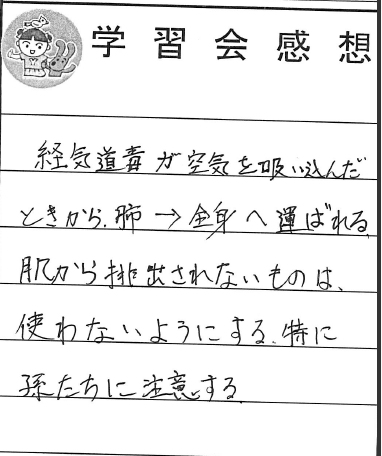 学習会感想
経気道毒が空気を吸い込んだ
ときから、肺→全身へ運ばれる。
肌から排出されないものは、
使わないようにする。特に
孫たちに注意する。